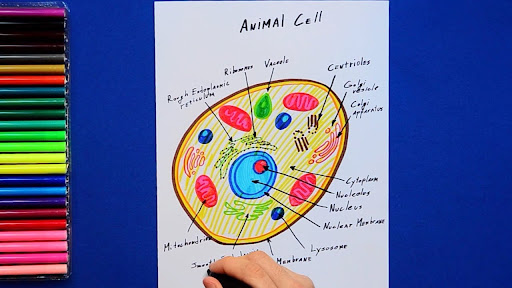 ANIMAL CELL
Ribosomes
Vacuole
CENTRIOLES
Rough Endoplasmic
Reticulum
Golgi
vesicle
Golgi
Apparatus
Cytoplasm
Nucleolus
Nucleus
Nuclear Membrane
Lysosome
Membrane
Smooth